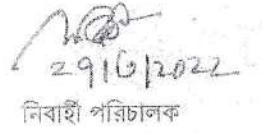 29/6/2022
নির্বাহী পরিচালক